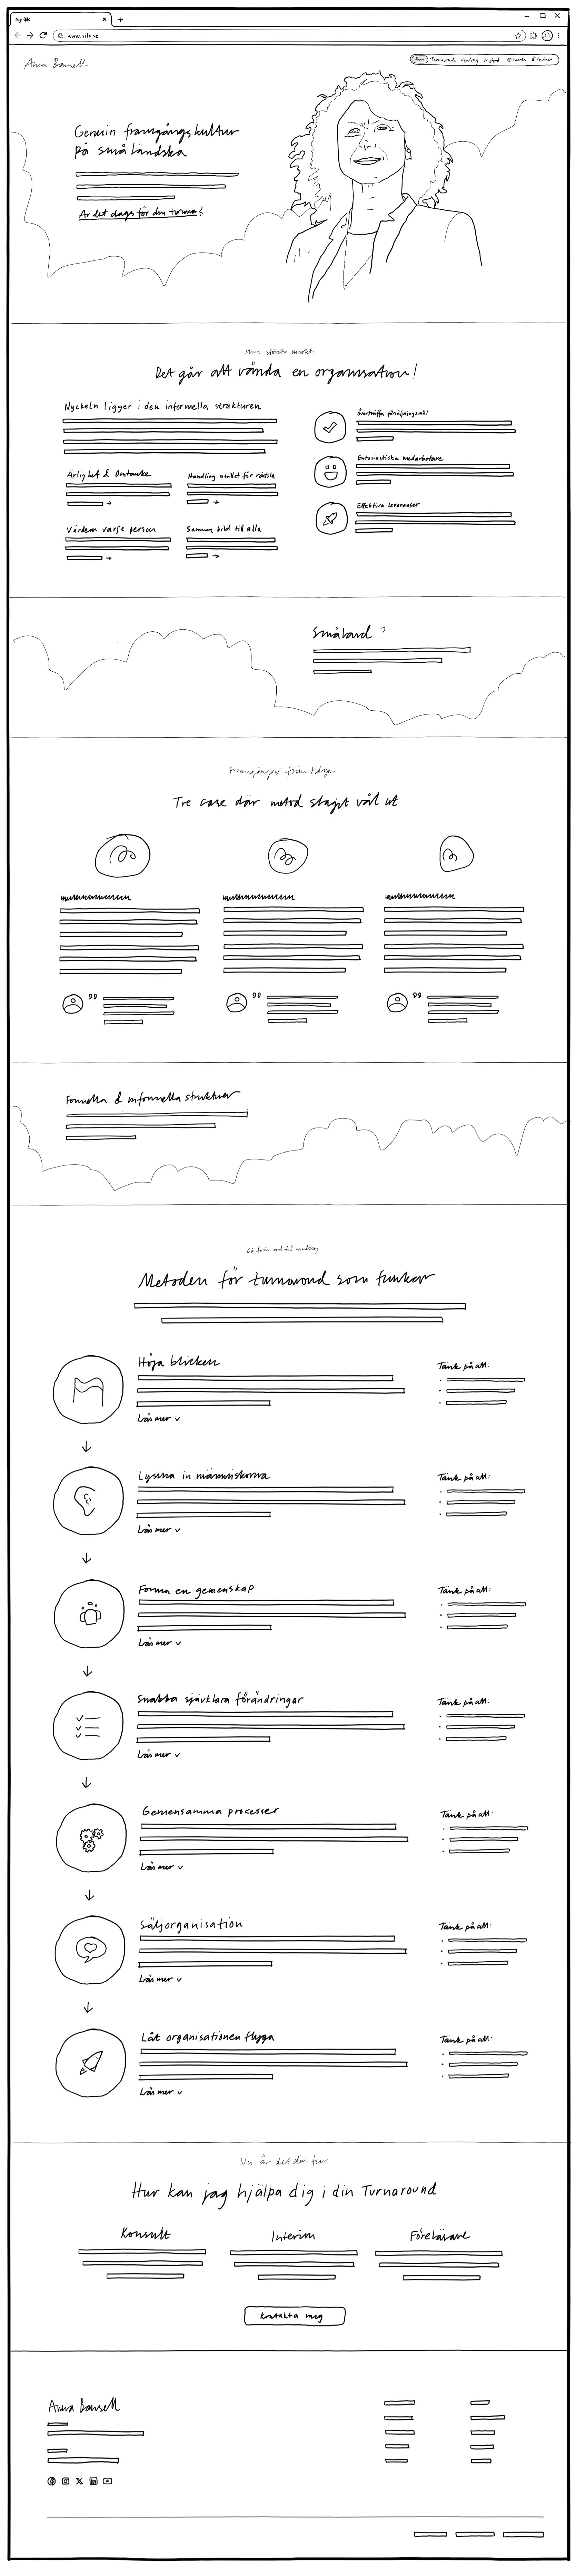 Ny flik
www.sida.se
Anna Bonsell
Hem Turnarounds Metod Kontakt
Genuin framgångskultur
på småländska
Är det dags för din turnaround?
Mina största insikt:
Det går att vända en organisation!
Nyckeln ligger i den informella strukturen
Ärlighet & Omtanke
Handling istället för rädsla
Värdera varje person
Samma bild till alla
Överträffa försäljningsmål
Entusiastiska medarbetare
Effektiva leveranser
Småland ?
Framgångar från
Tre case där metod slagit väl ut
Formella & informella strukturer
Gå från ord till handling
Metoden för turnarond som funkar
Höja blicken
Läs mer
Tänk på att:
Lyssna in människorna
Läs mer
Tänk på att:
Forma en gemenskap
Läs mer
Tänk på att:
Snabba självklara förändringar
Läs mer
Tänk på att:
Gemensamma processer
Läs mer
Tänk på att:
Säljorganisation
Läs mer
Tänk på att:
Låt organisationen flyga
Läs mer
Tänk på att:
Nu är det din tur
Hur kan jag hjälpa dig i din Turnaround
Konsult
Interim
Föreläsare
Kontakta mig
Anna Bonsell